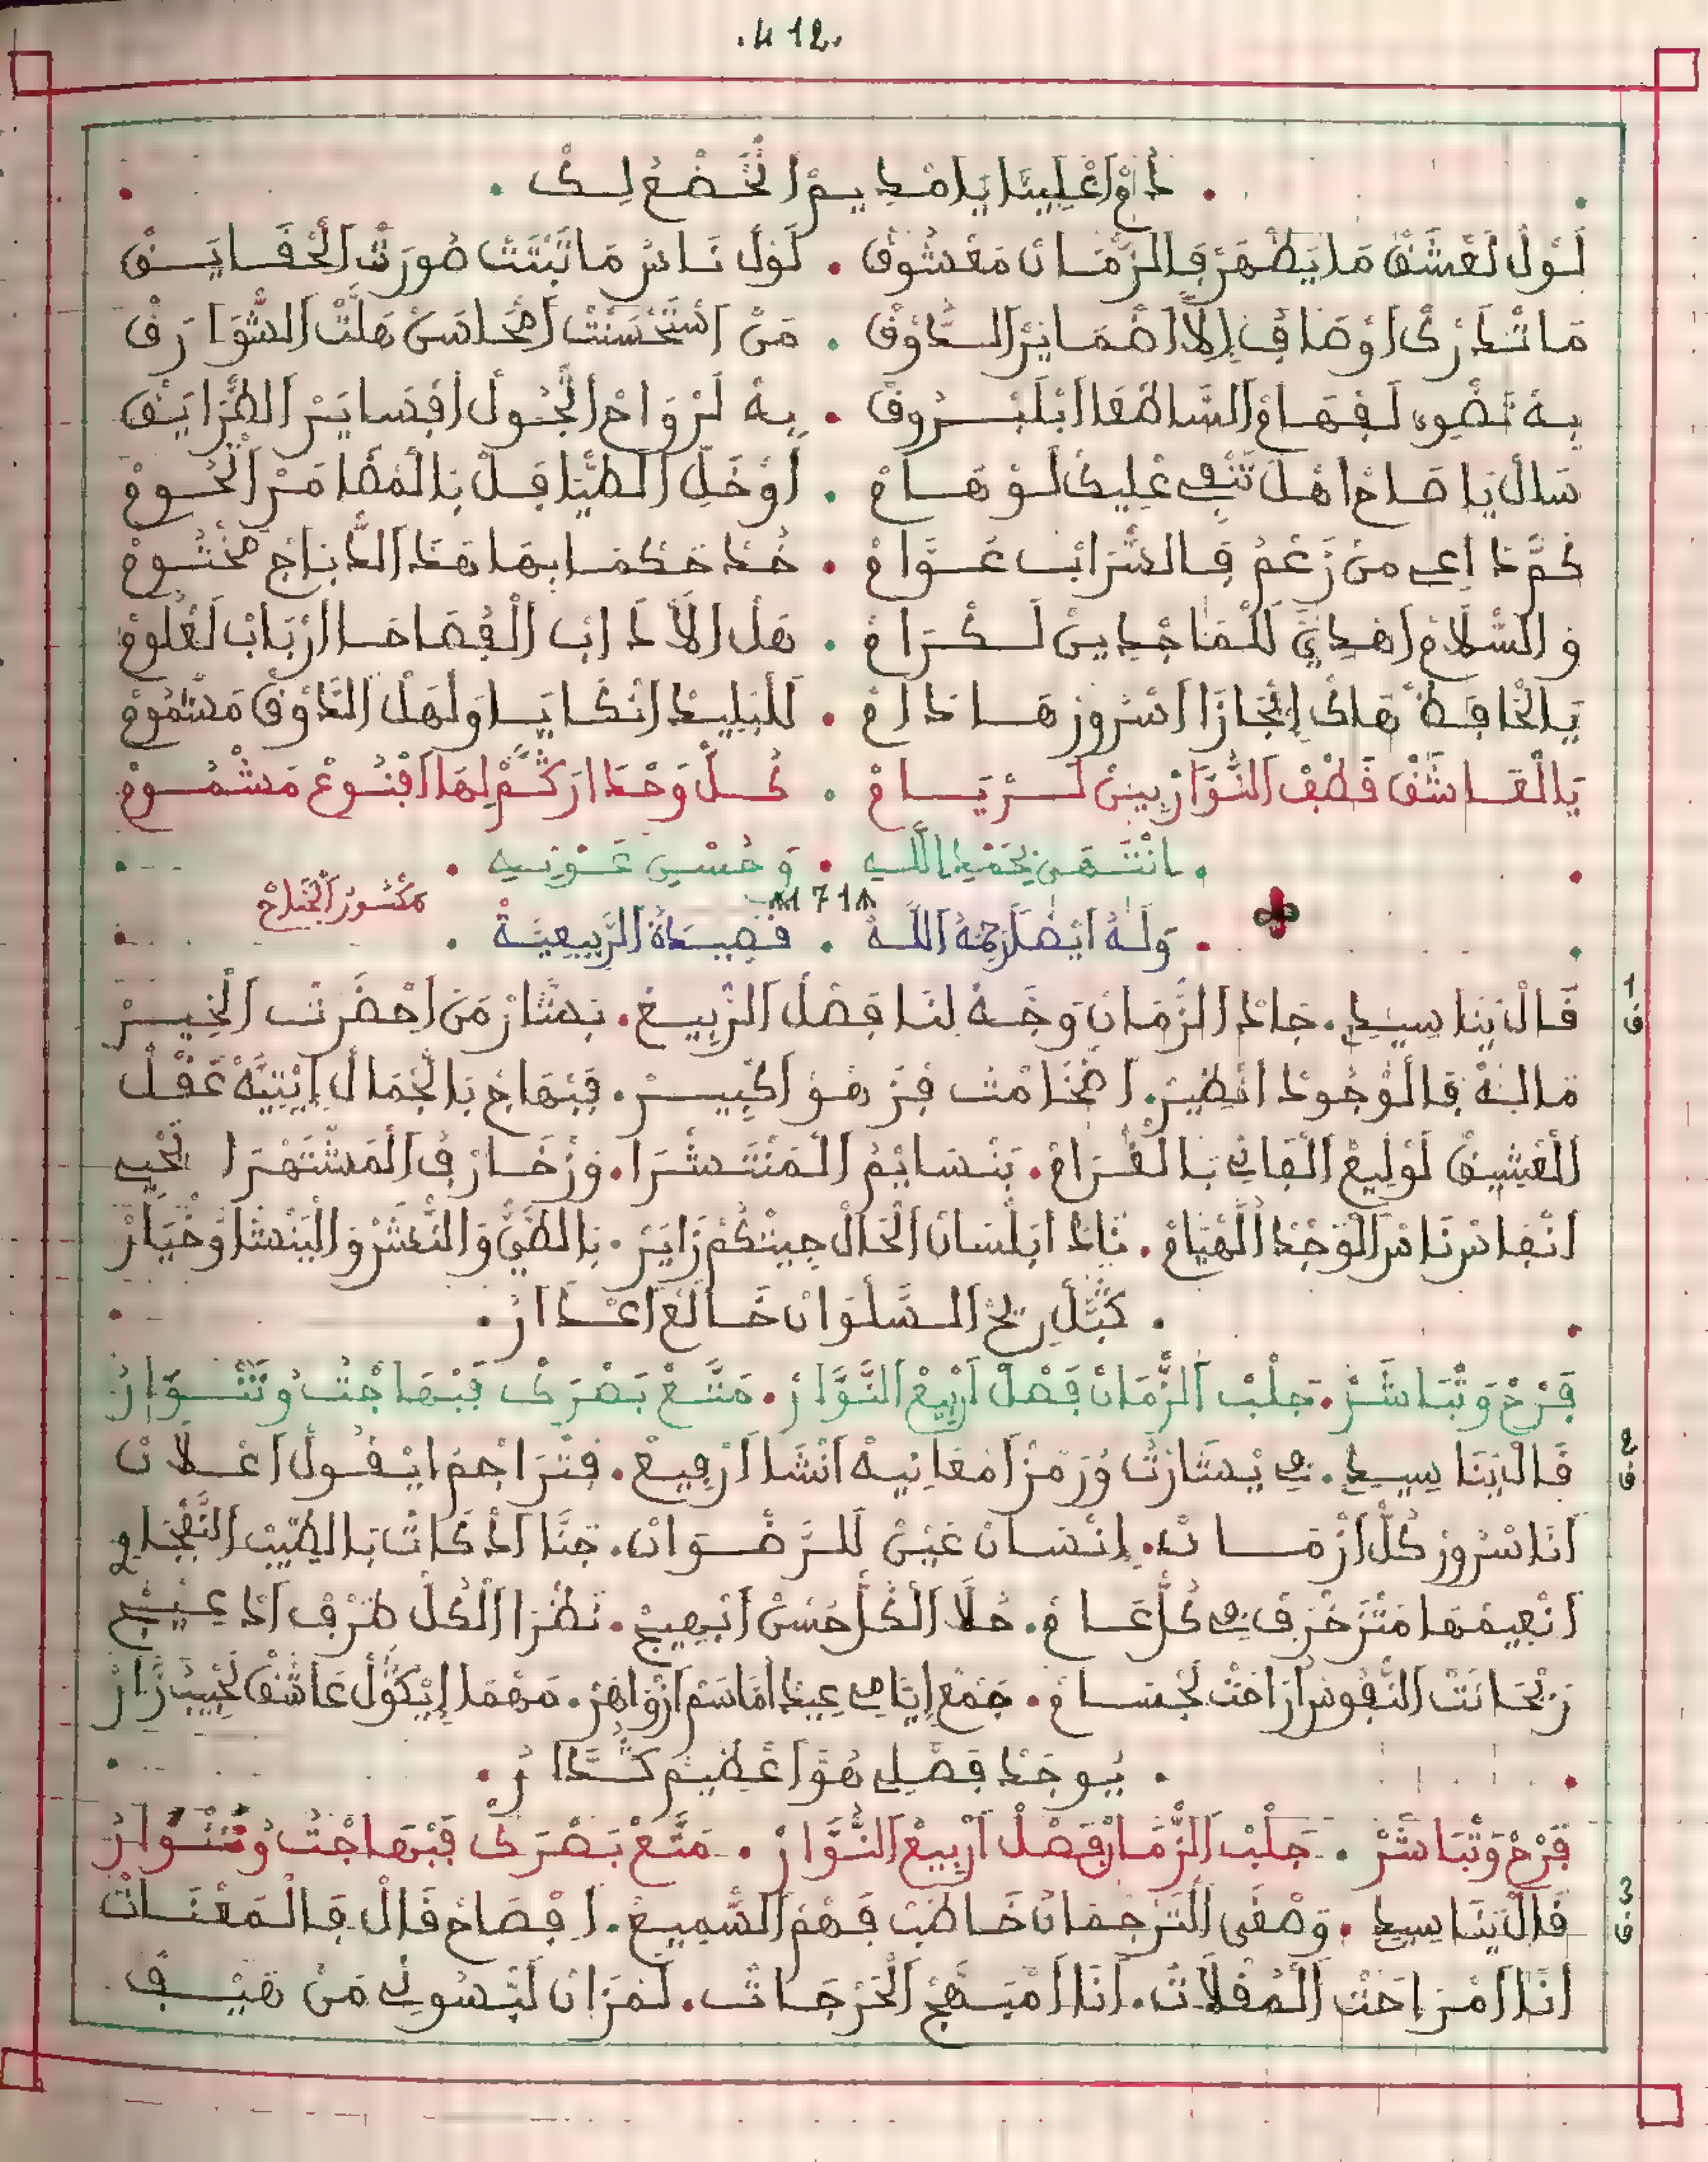 .412.
داوْ اعْلِينَا يَا مْدِيم الْخْضَعْ لِكْ
لَوْلْ لَعْشَقْ مَا يَظْهَرْ فِالزْمَانْ مَعْشُوقْ . لَوْلْ نَاسْ مَا ثَبْتَتْ صُورَتْ الْحْقَايَقْ
مَا تْدَرْكْ اَوْصَافْ اِلَّا اضْمَايَرْ الدُّوقْ . مَنْ اسْتَحْسَنْتْ امْحَاسَنْ هَلَّتْ الشْوَارَقْ
بِهْ تَضْوِي لَفْهَامْ السَّاطْعَا ابْلَبْرُوقْ . بِهْ لَرْوَاحْ اتْجُولْ افْبْسَايَرْ الطْرَايَقْ
سَالْ يَا صَاحْ اهْلْ تَنْفِي عْلِيكْ لَوْهَامْ . اَوْخَلِّ الطِّيَّافِلْ بَالْمْضَا مَنْ الْحُومْ
كَمّْ دَاعِي مَنْ زَعْمُ فِالشْرَابْ عَوَّامْ . خُدْ حَكْمَا بِهَا هَدْ الدِّبَاجْ مَخْتُومْ
وَالسْلَامْ اهْدِيَ لَلْمَاجْدِينْ لَكْرَامْ . هَلْ الْاَدَابْ الْفْصَاحَا ارْبَابْ لَعْلُومْ
يَا لْحَافَظْ هَاكْ اِيْجَازَا اسْرُوزْهَا دَامْ . لَلْبْلِيدْ انْكَايَا وَلَهَلْ الدُّوقْ مَسْمُومْ
يَا لْعَاشَقْ قَطْفْ النُّوَّارْ بِينْ لَرْيَامْ . كُلّْ وَحْدَا ارَكْتُمْ لهَا افْنُوعْ مَشْمُومْ
انْتَهَى بِحَمْدِ اللَّهِ . وَحُسْنِ عَوْنِهِ
171
مَكْسُورْ الْجْنَاحْ
وَلَهُ ايْضًا رَحِمَهُ اللَّهُ . قَصِيدَةُ الرَّبِيعِيَّةْ
1
ف
قَالْ يَنَا سِيدِي . جَادْ الزْمَانْ وَجَهْ لنَا فَصْلْ الرْبِيعْ . بَبْشَارْ مَنْ احْضْرَتْ الْخِيرْ
مَالُهْ فِالْوْجُودْ انْظِيرْ . اضْخَامْتْ فِزْ هُوَ اكْبِيرْ . فِبْهَاجْ بَالْجْمَالْ اِيْتِيَّهْ عَقْلْ
الْعْشِيقْ لَوْلِيعْ الْفَانِي بَالْغْرَامْ . بَنْسَايْمُ الْمَنْتَشْرَا . وَزْخَارْفُ الْمَشْتَهْرَا تْحْيِي
انْفَاسْ نَاسْ الْوَجْدْ الْهْيَامْ . نَادَ ابْلْسَانْ الْحَالْ جِيتْكُمْ زَايَرْ . بَالطَّيّْ وَالنَّشْرْ وَالْبَنْشَا وَخْيَارْ
. كَبَّلْ رِيحْ السَّلْوَانْ خَالَعْ اعْدَارْ .
فْرَحْ وَتْبَاشَرْ . جَلْبْ الزْمَانْ فَصْلْ ارْبِيعْ النُّوَّارْ . مَتَّعْ بَصْرَكْ فَبْهَاجْتُ وُتَنْوَارُ
2
ف
قَالْ يَنَا سِيدِي . فِي بْشَارْتُ وُرَمْزْ امْعَانِيهْ انْشَا ارْفِيعْ . فِتْرَاجْمُ ايْقُولْ اعْلَانْ
انَا سْرُورْ كُلّْ ازْمَانْ . اِنْسَانْ عَيْنْ لَلرَّضْوَانْ . جَنَّا ادْكَاتْ بَالطِّيبْ النَّفْحَاوِي
انْعِيمْهَا مَتْزَخْرَفْ فِي كُلّْ عَامْ . حُلَا الْكُلّْ حُسْنْ ابْهِيجْ . نَظْرَا الْكُلّْ طَرْفْ ادْعِيجْ
رَيْحَانَتْ النّْفُوسْ ارَاحْتْ لَجْسَامْ . جَمْعْ اِيَّامِي عِيدْ امَاسَمْ ازْوَاهَرْ . مَهْمَا اِيْكُولْ عَاشَقْ لَحْبِيبْ زَارْ
. يُوجَدْ فَصْلِي هُوَّ اعْظِيمْ كَدَّارْ .
فْرَحْ وَتْبَاشَرْ . جَلْبْ الزْمَانْ فَصْلْ ارْبِيعْ النُّوَّارْ . مَتَّعْ بَصْرَكْ فَبْهَاجْتُ وُتَنْوَارُ
3
ف
قَالْ يَنَا سِيدِي . وَصْغَى التَّرْجْمَانْ خَاطَبْ فَهْمْ السْمِيعْ . افْصَاحْ قَالْ فَالْمَعْنَاتْ
انَا امْرَاحْتْ الْمُقْلَاتْ . انَا امْبَهَّجْ الْحَرْجَاتْ . لَمْزَانْ لَيْسُولِي مَنْ هَيْفْ